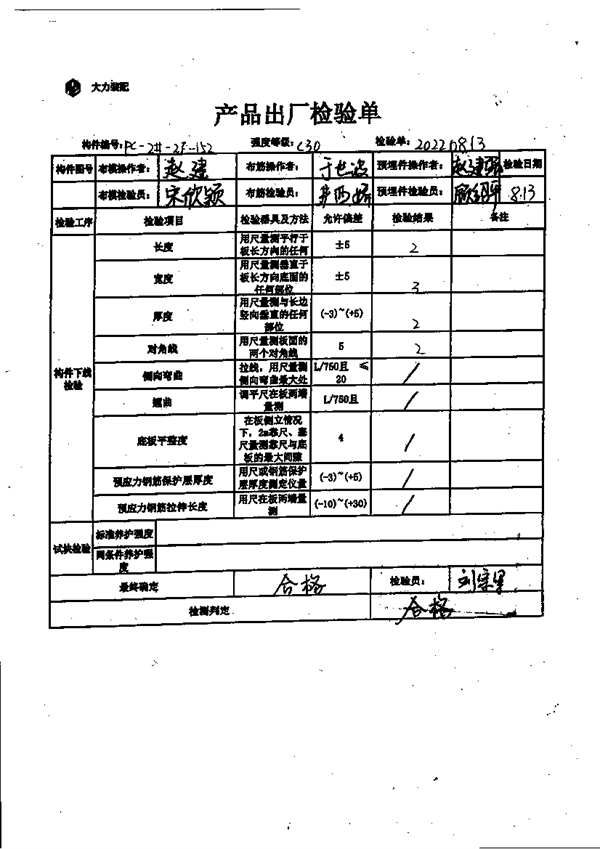 大力装配
产品出厂检验单
构件编号: PC-2#-2F-152 强度等级: C30 检验单: 2022.08.13
构件图号 布模操作者: 赵建 布筋操作者: 预埋件操作者: 赵建 检验日期
布模检验员: 宋欣颖 布筋检验员: 预埋件检验员: 8.13
检验工序 检验项目 检验器具及方法 允许偏差 检验结果 备注
构件下线检验
长度 用尺量测平行于板长方向的任何 ±5 2
宽度 用尺量测垂直于板长方向底面的任何部位 ±5 3
厚度 用尺量测与长边竖向垂直的任何部位 (-3)~(+5) 2
对角线 用尺量测板面的两个对角线 5 2
侧向弯曲 拉线，用尺量测侧向弯曲最大处 L/750且 ≤20 /
翘曲 调平尺在板两端量测 L/750且 /
底板平整度 在板侧立情况下，2m靠尺、塞尺量测靠尺与底板的最大间隙 4 /
预应力钢筋保护层厚度 用尺或钢筋保护层厚度测定仪量 (-3)~(+5) /
预应力钢筋拉伸长度 用尺在板两端量测 (-10)~(+30) /
试块检验 标准养护强度
同条件养护强度
最终确定 合格 检验员:
检测判定 合格